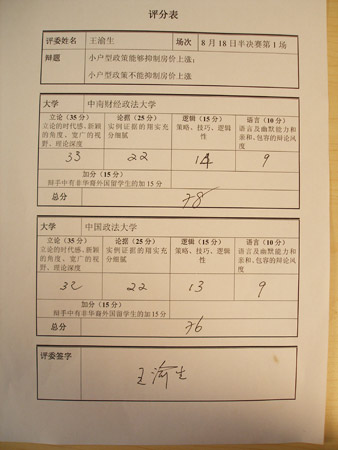 评分表
评委姓名 王渝生 场次 8月18日半决赛第1场
辩题 小户型政策能够抑制房价上涨；
小户型政策不能抑制房价上涨
大学 中南财经政法大学
立论（35分） 论据（25分） 逻辑（15分） 语言（10分）
立论的时代感、新颖 实例证据的翔实充 策略、技巧、逻辑 语言及幽默能力和
的角度、宽广的视 分细腻 性 亲和、包容的辩论风
野、理论深度 度
33 22 14 9
加分（15分）
辩手中有非华裔外国留学生的加15分
总分 78
大学 中国政法大学
立论（35分） 论据（25分） 逻辑（15分） 语言（10分）
立论的时代感、新颖 实例证据的翔实充 策略、技巧、逻辑 语言及幽默能力和
的角度、宽广的视 分细腻 性 亲和、包容的辩论风
野、理论深度 度
32 22 13 9
加分（15分）
辩手中有非华裔外国留学生的加15分
总分 76
评委签字
王渝生